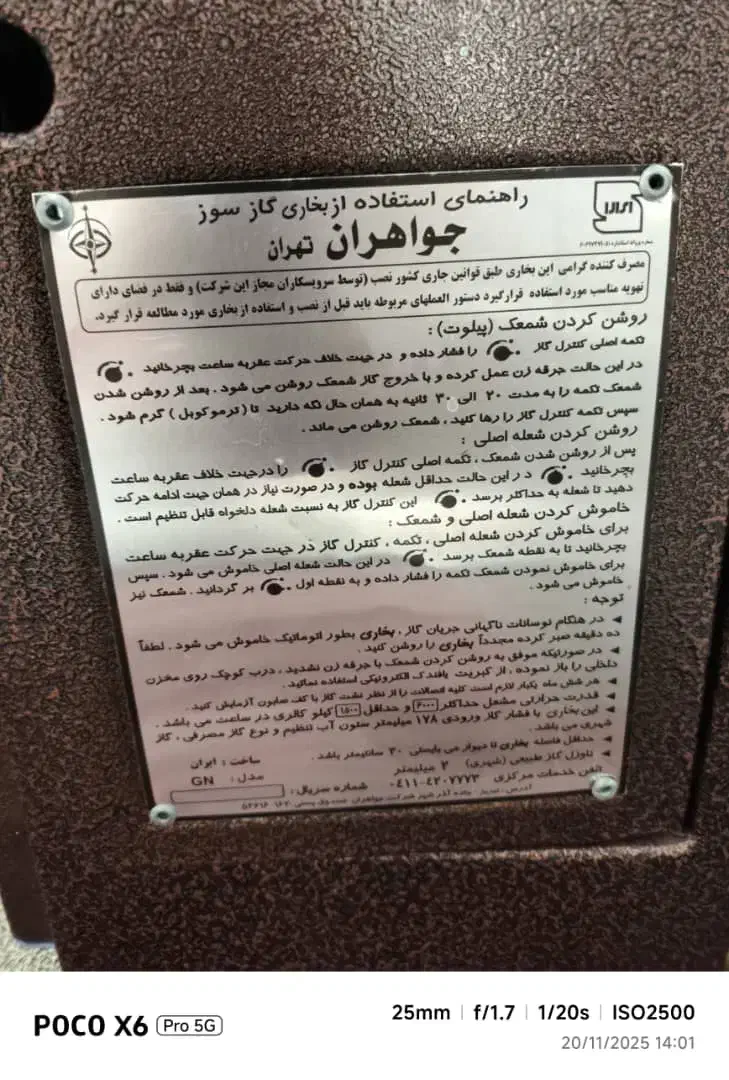 راهنمای استفاده از بخاری گاز سوز
جواهران تهران
مصرف کننده گرامی این بخاری طبق قوانین جاری کشور نصب (توسط سرویسکاران مجاز این شرکت) و فقط در فضای دارای
تهویه مناسب مورد استفاده قرار گیرد دستور العملهای مربوطه باید قبل از نصب و استفاده از بخاری مورد مطالعه قرار گیرد.
روشن کردن شمعک (پیلوت):
تکمه اصلی کنترل گاز را فشار داده و در جهت خلاف حرکت عقربه ساعت بچرخانید
در این حالت جرقه زن عمل کرده و با خروج گاز شمعک روشن می شود. بعد از روشن شدن
شمعک تکمه را به مدت ۲۰ الی ۳۰ ثانیه به همان حال نگه دارید تا (ترموکوبل) گرم شود.
سپس تکمه کنترل گاز را رها کنید، شمعک روشن می ماند.
روشن کردن شعله اصلی:
پس از روشن شدن شمعک، تکمه اصلی کنترل گاز را درجهت خلاف عقربه ساعت
بچرخانید در این حالت حداقل شعله بوده و در صورت نیاز در همان جهت ادامه حرکت
دهید تا شعله به حداکثر برسد. این کنترل گاز به نسبت شعله دلخواه قابل تنظیم است.
خاموش کردن شعله اصلی و شمعک:
برای خاموش کردن شعله اصلی، تکمه، کنترل گاز در جهت حرکت عقربه ساعت
بچرخانید تا به نقطه شمعک برسد. در این حالت شعله اصلی خاموش می شود. سپس
برای خاموش نمودن شمعک تکمه را فشار داده و به نقطه اول بر گردانید. شمعک نیز
خاموش می شود.
توجه:
در هنگام نوسانات ناگهانی جریان گاز، بخاری بطور اتوماتیک خاموش می شود. لطفاً
ده دقیقه صبر کرده مجدداً بخاری را روشن کنید.
در صورتیکه موفق به روشن کردن شمعک با جرقه زن نشدید، درب کوچک روی مخزن
داخلی را باز نموده، از کبریت یافندک الکترونیکی استفاده نمائید.
هر شش ماه یکبار لازم است کلیه اتصالات را از نظر نشت گاز با کف صابون آزمایش کنید.
قدرت حرارتی مشعل حداکثر ۶۰۰۰ و حداقل ۱۵۰۰ کیلو کالری در ساعت می باشد.
این بخاری با فشار گاز ورودی ۱۷۸ میلیمتر ستون آب تنظیم و نوع گاز مصرفی، گاز
شهری می باشد.
حداقل فاصله بخاری تا دیوار می بایستی ۳۰ سانتیمتر باشد.
ناوزل گاز طبیعی (شهری) ۲ میلیمتر ساخت: ایران
تلفن خدمات مرکزی ۴۲۰۷۷۷۳-۰۴۱۱ مدل: GN
شماره سریال:
آدرس: تبریز - جاده آذر شهر شرکت جواهران صندوق پستی
POCO X6 Pro 5G
25mm | f/1.7 | 1/20s | ISO2500
20/11/2025 14:01